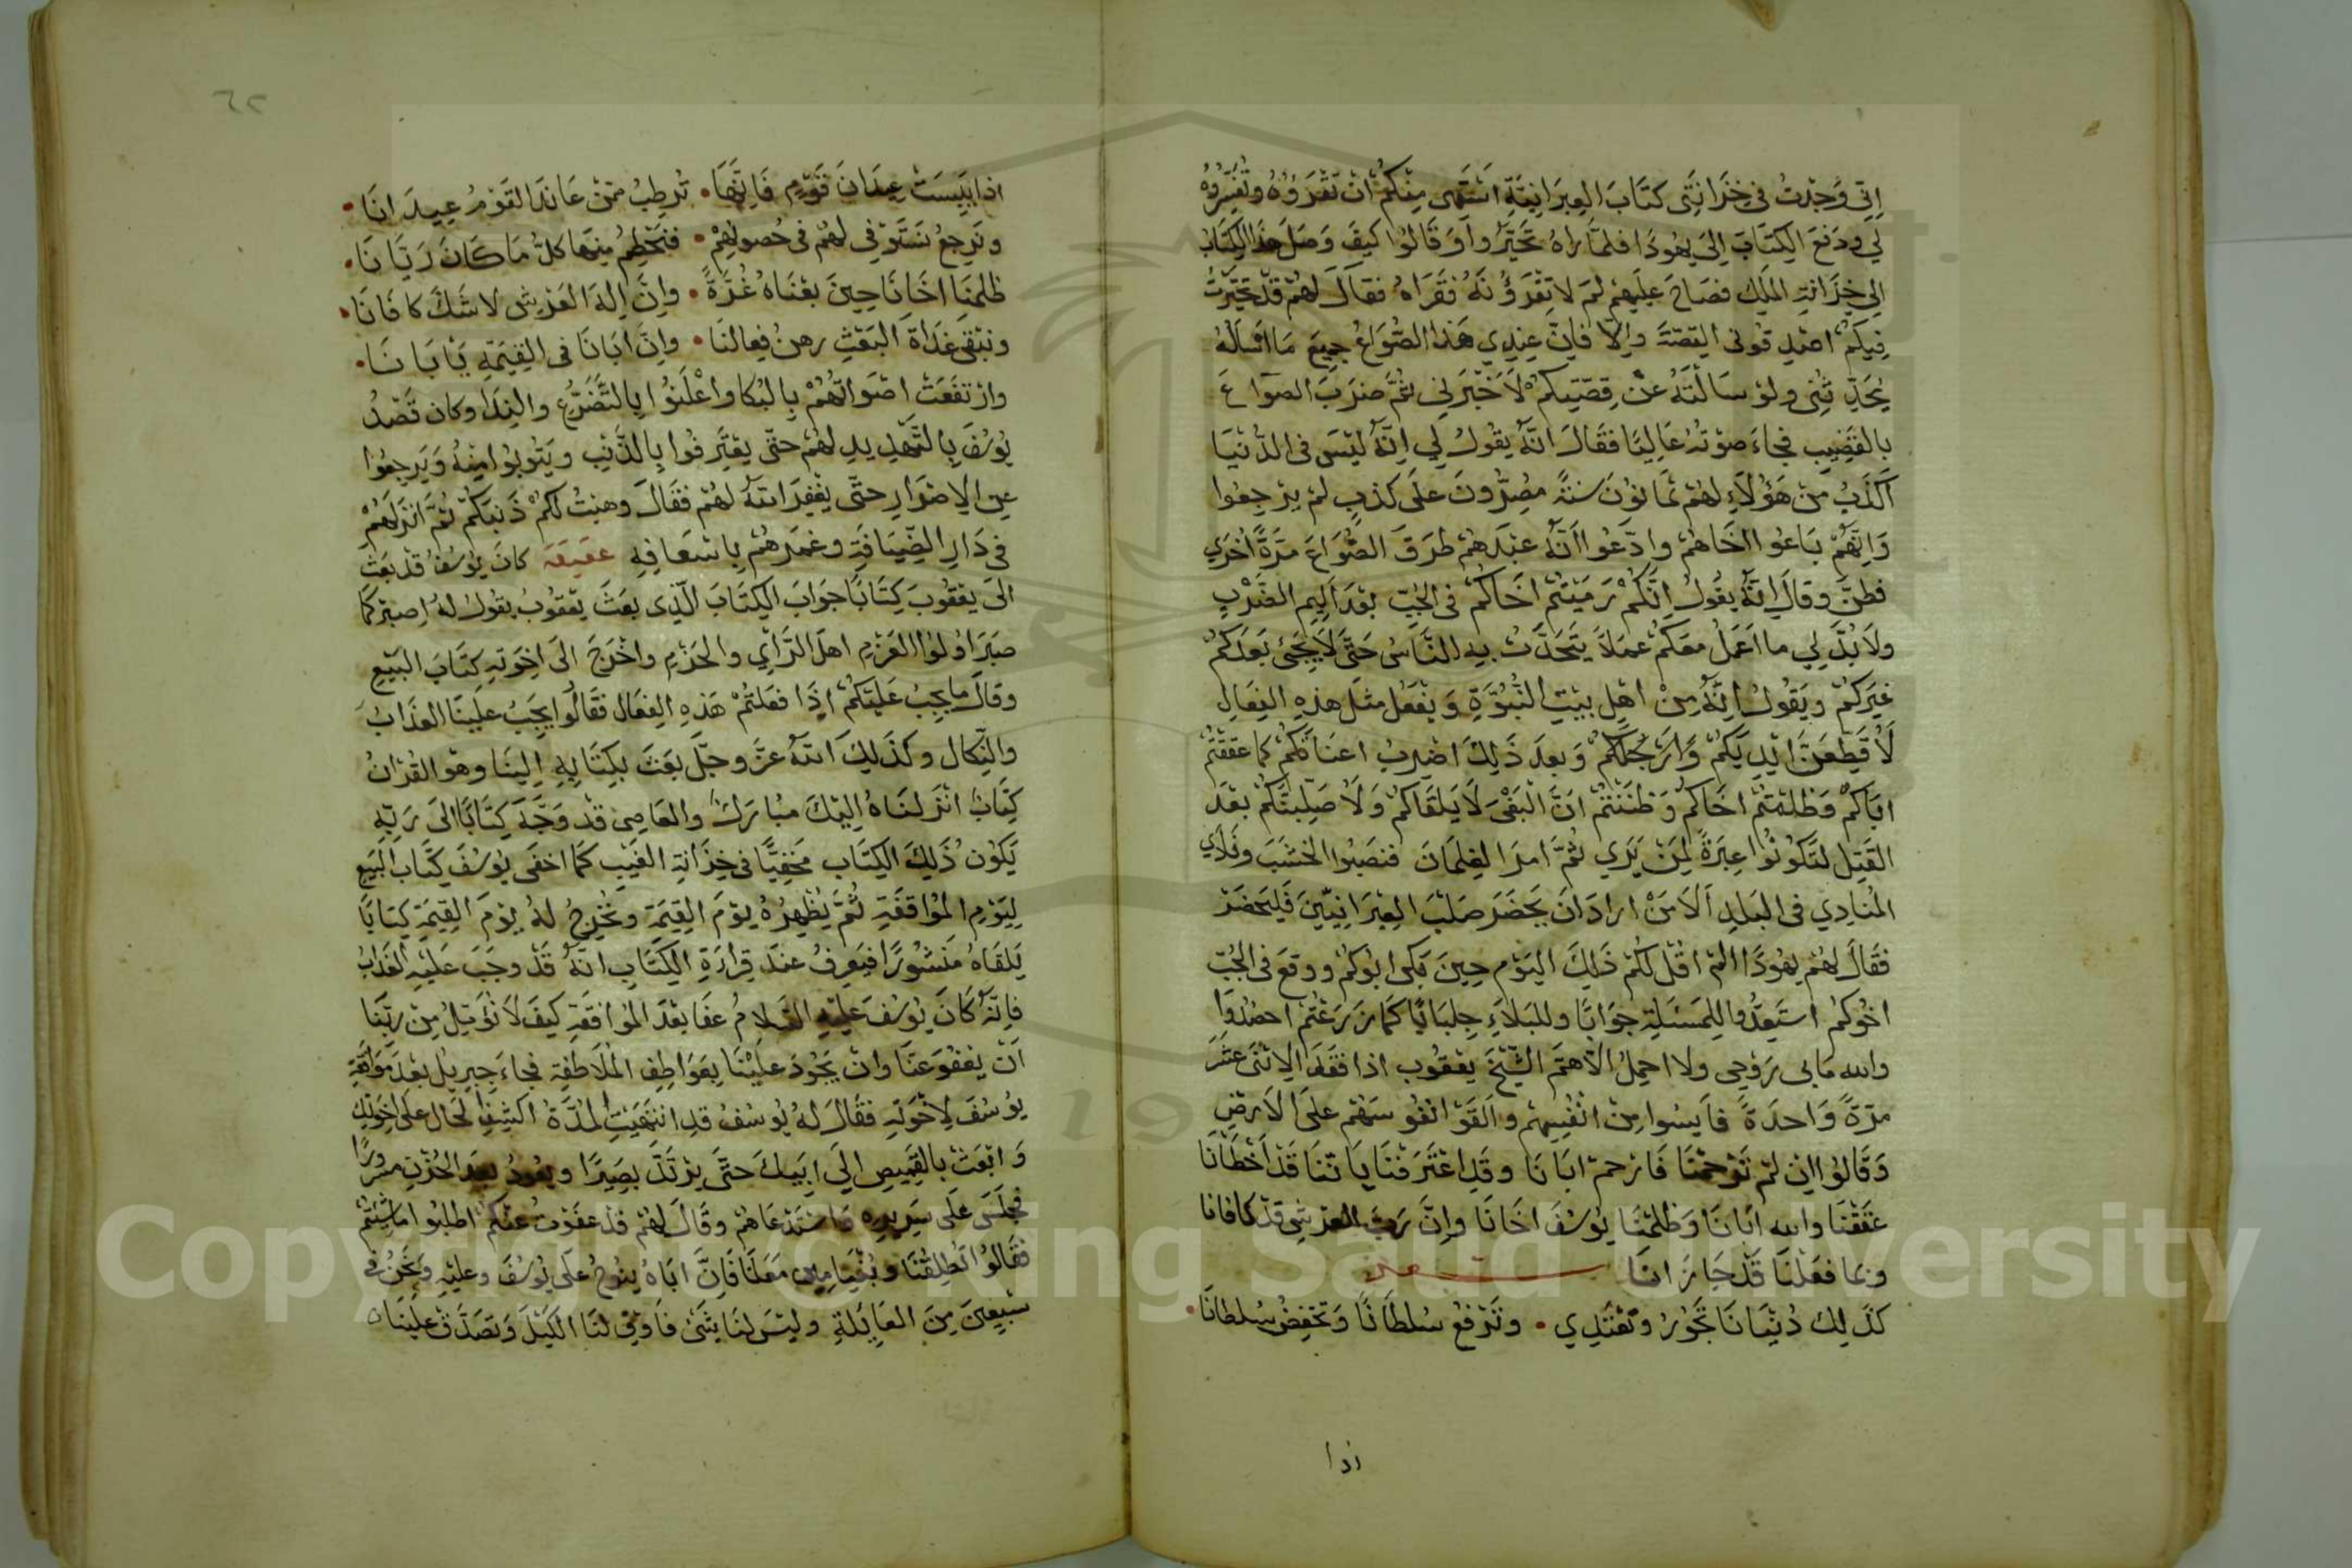 اِنّي وَجَدْتُ في خِزَانَتِي كتَابَ العِبرَانِيَّةِ اشتَهى مِنْكُمْ انْ تَقْرَؤُهُ وتُفَسِّرُوهُ
لي ودَفعَ الكِتَابَ اِلىَ يهُودَا فلمَّا رَاهُ تَحَيَّرُ واَوَ قَالوُا كيفَ وَصَلَ هَذا الكِتَابُ
اِلي خِزَانةِ المَلِكِ فصَاحَ عليَهِمْ لِمَ لا تَقْرَؤُنَهُ فقَرَاهُ فقالَ لهُمْ قَدْ تَحَيَّرْتُ
فِيكُمْ اصْدِقُونى القِصّةَ وإلّا فاِنَّ عِنِدي هَذا الصُّوَاعُ جميعَ مَا اَسْألهُ
يُحَدِّثُنِى ولوْ سَالْتَهُ عَنْ قِصّتِكمْ لاَخْبَرَني ثمَّ ضرَبَ الصوَاعَ
بالقَضِيبِ فجاءَ صوْتُهُ عَالِيًا فقَالَ انَّهُ يقُولُ لِي اِنَّهُ ليْسَ فى الدُّنيَا
اَكَذَبُ مِنْ هَؤُلاَءِ لهُمْ ثمَانوُنَ سنَةً مُصِرُّونَ علَى كذبٍ لمْ يرْجِعُوا
وَاِنّهُمْ بَاعُوا اخَاهُمْ وادّعُوا اَنّهُ عبْدَهمْ طرَقَ الصُّوَاعَ مرّةً اخرَي
فطنَّ وقالَ اِنّهُ يقُولُ انّكُمْ رَمَيْتُمْ اخَاكُمْ فى الجُبِّ بعْدَ اَلِيمِ الضَّرْبِ
ولاَ بُدَّ لِي ما اَعْمَلُ معَكُمْ عمَلاً يَتَحَدَّثُ بِهِ النَّاسُ حَتَّى لاَ يَجِئَ بَعدَكُمْ
غيَركُمْ ويَقُولُ اِنَّهُ مِنْ اهْلِ بيْتِ النُّبُوَّةِ وَيفْعَلُ مثلَ هذِهِ الفِعَالِ
لَاُقَطِعَنَّ ايْدِيَكُمْ وَاَرْجُلَكُمْ وَبعدَ ذَلِكَ اضْرِبُ اعنَاقَكُمْ كما عقَقْتُمْ
ابَاكمْ وَظلمْتُمْ اخَاكُمْ وَظنَنْتُمْ انَّ الْبَغْىَ لاَ يَلقَاكُمْ وَلاُصَلِّبَنّكُمْ بعْدَ
القَتلِ لتَكُونُوا عِبرَةً لِمَنْ يَرَي ثُمَّ امرَ الغِلمَانَ فنصَبُوا الخشَبَ ونَادَي
المُنادِي فى البَلدِ اَلاَ مَنْ ارادَ انَ يَحْضَرَ صَلْبَ العِبْرَانِيّينَ فَليَحْضَرْ
فقَالَ لهُمْ يهُودَا المْ اقُلْ لكُمْ ذَلِكَ اليَوْم حِينَ بَكى ابُوكمْ ووقعَ فى الجُبِّ
اخُوكمْ استَعِدُّوا للِمَسْئلةِ جوَابًا وللبَلاَءِ جِلبَابًا كمَا زَرَعْتُمْ احصُدُوَا
والله مَا بي رُوْحِى ولا احمِلُ الاّ همَّ الشّيْخَ يعْقُوب اذا فقَدَ الاِثنَىْ عشَرَ
مرّةً وَاحدَةً فأيِسُوا مِنْ انفُسِهمْ واَلقَوْ انفُوسَهُمْ علَى الاَرْضِ
وَقَالوُا اِنْ لمْ تَرْحمْنَا فَارْحمْ ابَانَا وقَدِ اعْتَرَفنَا بِاَنّنَا قَدْ اَخْطَأْنَا
عقَقْنَا والله ابَانَا وَظلمْنَا يوُسُفَ اخَانَا وانَّ رَبَّ العرْشِ قدْ كافانا
وبما فعَلنَا قَدْ جَازَانَا
كذَلِكَ دُنْيَانَا تَجُوْرُ وتَعْتَدِي • وتَرْفعُ سُلطَانًا وَتخفِضُ سُلطانَا •
اذا
٦٢
اذا يَبِسَتْ عِيدَانُ قَوْمٍ فَاِنّهَا • تُرطِبُ منْ عَانَدَ القَوْمُ عِيدَانَا •
وترجِعُ تستَوْفِي لهُمْ فى حُصولهِمْ • فتحْطِمُ مِنهَا كلّ مَا كَانَ رَيَّانَا •
ظلمنَا اخَانَا حِينَ بعْنَاهُ غُدْرَةً • وانَّ إلهَ العَرْشِ لا شَكَّ كافَانَا •
ونَبْقى غدَاةَ البَعْثِ رهنُ فِعالنَا • وانَّ ابَانَا فى القِيمَةِ يَابَانَا •
وارْتفَعَتْ اصْوَاتُهُمْ بِالبُكا واعْلَنُوا بِالتَّضَرُّعِ والنِدَا وكان قَصْدُ
يُوسُفَ بِالتَّهْدِيدِ لهُمْ حتّى يعْتَرفُوا بِالذَّنْبِ ويَتُوبُوا مِنْهُ وَيَرجِعُوا
عنِ الاِصْرَارِ حتَّى يغْفِرَ اللهُ لهُمْ فقَالَ وهبْتُ لكُمْ ذَنبَكمْ ثُمَّ انزَلهُمْ
فى دَارِ الضِّيَافَةِ وغمَرَهُمْ بِاسْعَافِهِ عقيقة كانَ يُوْسُفُ قَدْ بعَثَ
الىَ يعْقُوبَ كِتَابًا جوَابَ الكِتَابَ الّذِى بعَثَ يعْقُوبُ يقولُ لهُ اصبِرْ كَمَا
صبَرَ اوُلوُا العَزْمِ اهلَ الرَّأيِ والحَزْمِ واخْرَجَ الىَ اخوَتهِ كتَابَ البَيْعِ
وقالَ مَا يجِبُ عَليَكُمْ اِذَا فعَلتُمْ هَذِهِ الفِعَال فقَالوُا يجِبُ علَينَا العَذَابُ
والنِّكَال وكذَلِكَ اللهُ عزَّ وجلّ بعَثَ بكِتَابِهِ إليْنَا وهوَ القرْانُ
كِتَابٌ انْزَلنَاهُ اِليْكَ مبُارَكٌ والعَاصِى قدْ وَجَّهَ كِتَابًا الىَ رَبِّهِ
يَكُوْن ذَلِكَ الكِتَاب مَخفِيًّا فى خِزَانةِ الغَيْبِ كَمَا اخفَى يوُسُفَ كتَابَ البَيعِ
لِيَوْمِ المُوَاقفَةِ ثُمَّ يُظْهِرُهُ يوْمَ القِيمَةِ وَيُخْرِجُ لهُ يوْمَ القِيمَةِ كِتَابًا
يَلقَاهُ مَنْشُوْرًا فيَعرِفُ عندَ قِرَاءَةِ الكِتَابِ انّهُ قَدْ وجَبَ عَليْهِ العَذَابُ
فاِنّهُ كَانَ يوُسُفَ علَيْهِ السَّلامُ عَفَا بعْدَ الموُافقَةِ كيفَ لاَ نُؤَمِّلُ مِنْ رَبِّنَا
اَنْ يَعْفُوَ عَنَّا وانْ يَجُوْدَ عليْنَا بِعَوَاطِفِ المُلاَطفَةِ فجاءَ جِبرِيلُ بعْدَ مُوَافَقَةِ
يوُسُفَ لاِخْوَتهِ فقَالَ لهُ يوُسُفُ قَدِ انتَهَيَتِ المُدّةُ اكشِفِ الحَالَ علَى اِخوَتِكَ
وَابْعَثْ بالقَمِيصِ اِلي ابِيكَ حتَّى يرْتَدَّ بصِيرًا ويعُودُ بعد الحُزْنِ مسرُورًا
فجَلسَ علَى سَرِيرِهِ واستَدْعَاهُمْ وقَالَ لهُمْ قَدْ عفَوْتُ عنْكُمْ اطلبُوا مَا شِئتُمْ
فقالوُا اتُطلِقُنَا وبُنْيَامِين معَنَا فاِنَّ ابَاهُ ينُوحُ علَى يوُسُفَ وعليْهِ وَنحْنُ في
سَبْعِينَ مِنَ العَايِلةِ وليْسَ لنَا شَئٌ فَاَوْفِ لنَا الكَيْلَ وَتصَدّقْ عليْنَا